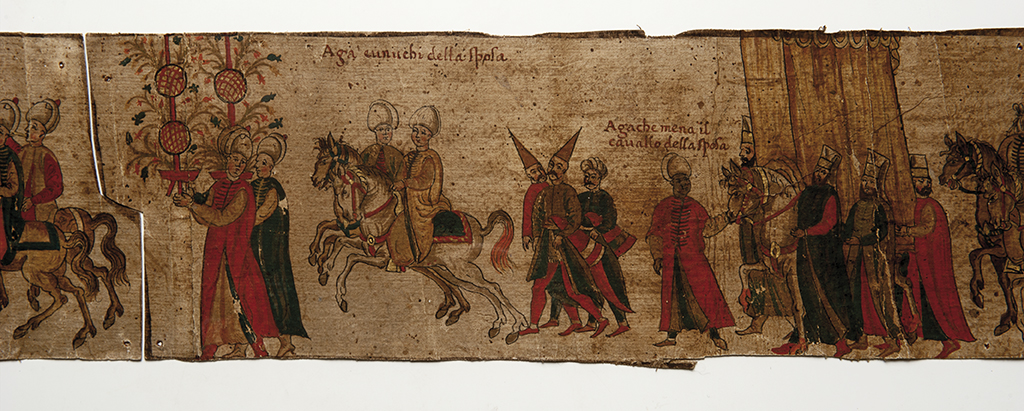 Aga eunuchi della sposa
Aga che mena il
cauallo della sposa